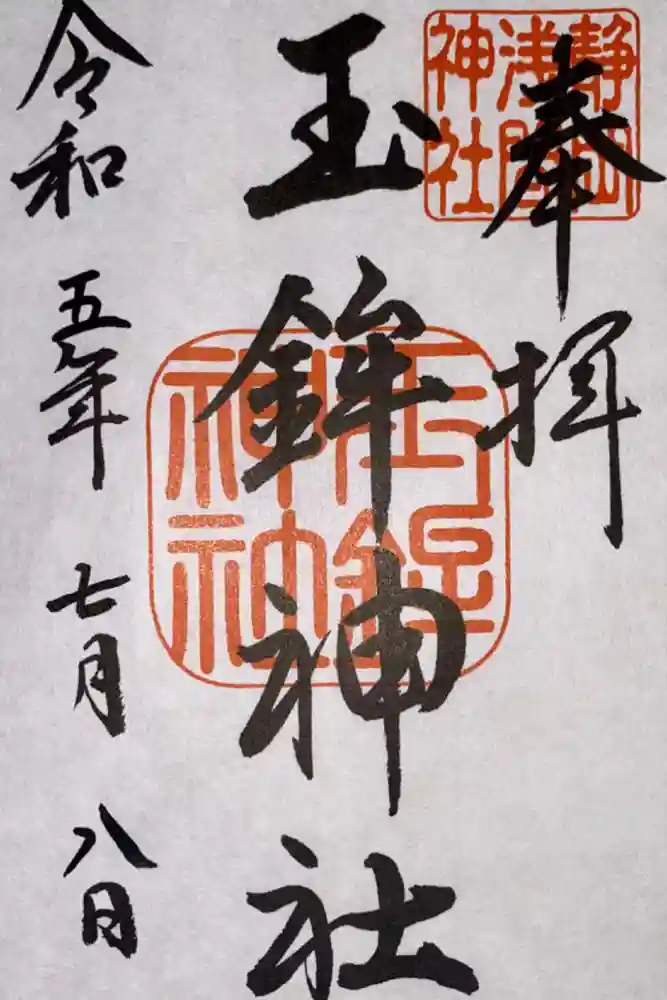 奉拝
静岡
浅間
神社
玉鉾神社
玉鉾
神社
令和五年七月八日